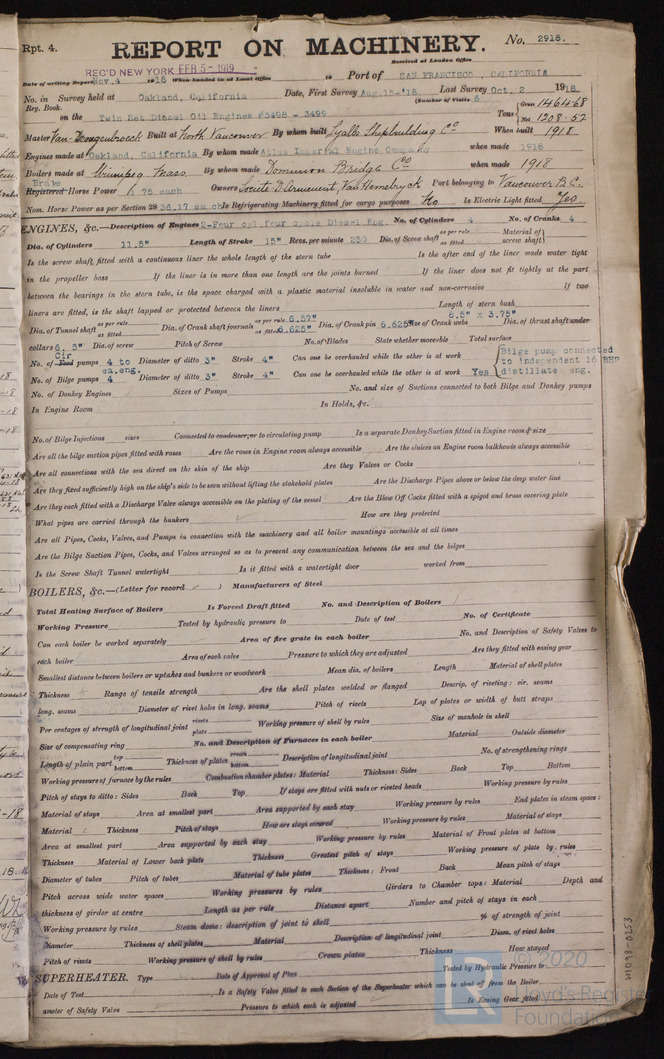 Rpt. 4.
REPORT ON MACHINERY.
No. 2918.
Received at London Office
REC'D NEW YORK FEB 5 - 1919
Date of writing Report Nov. 4 1918 When handed in at Local Office 19 Port of SAN FRANCISCO, CALIFORNIA
No. in Survey held at Oakland, California Date, First Survey Aug. 15-'18 Last Survey Oct. 2 1918
Reg. Book. (Number of Visits 6
on the Twin Set Diesel Oil Engines 63498 - 3499 Tons Gross 1464.68
Net 1208.52
Master Van Bongenbroeck Built at North Vancouver By whom built Lyalls Shipbuilding Co When built 1918
Engines made at Oakland, California By whom made Atlas Imperial Engine Company when made 1918
Boilers made at Winnipeg Mass. By whom made Dominion Bridge Co when made 1918
Brake
Registered Horse Power 75 each Owners Societe D'Armement, Van Hemelryck Port belonging to Vancouver B.C.
Nom. Horse Power as per Section 28 36.17 each Is Refrigerating Machinery fitted for cargo purposes No Is Electric Light fitted Yes.
ENGINES, &c.—Description of Engines 2-Four cyl.four cycle Diesel Eng. No. of Cylinders 4 No. of Cranks 4
Dia. of Cylinders 11.5" Length of Stroke 15" Revs. per minute 250 Dia. of Screw shaft as per rule as fitted Material of screw shaft
Is the screw shaft fitted with a continuous liner the whole length of the stern tube Is the after end of the liner made water tight
in the propeller boss If the liner is in more than one length are the joints burned If the liner does not fit tightly at the part
between the bearings in the stern tube, is the space charged with a plastic material insoluble in water and non-corrosive If two
liners are fitted, is the shaft lapped or protected between the liners Length of stern bush
Dia. of Tunnel shaft as per rule as fitted Dia. of Crank shaft journals as per rule 6.57" as fitted 6.625" Dia. of Crank pin 6.625" Size of Crank webs 8.5" x 3.75" Dia. of thrust shaft under
collars 6.5" Dia. of screw Pitch of Screw No. of Blades State whether moveable Total surface
No. of Cir Feed pumps 4 to ea.eng. Diameter of ditto 3" Stroke 4" Can one be overhauled while the other is at work
No. of Bilge pumps 4 Diameter of ditto 3" Stroke 4" Can one be overhauled while the other is at work Yes
Bilge pump connected
to independent 16 BHP
distillate eng.
No. of Donkey Engines Sizes of Pumps No. and size of Suctions connected to both Bilge and Donkey pumps
In Engine Room In Holds, &c.
No. of Bilge Injections sizes Connected to condenser, or to circulating pump Is a separate Donkey Suction fitted in Engine room & size
Are all the bilge suction pipes fitted with roses Are the roses in Engine room always accessible Are the sluices on Engine room bulkheads always accessible
Are all connections with the sea direct on the skin of the ship Are they Valves or Cocks
Are they fixed sufficiently high on the ship's side to be seen without lifting the stokehold plates Are the Discharge Pipes above or below the deep water line
Are they each fitted with a Discharge Valve always accessible on the plating of the vessel Are the Blow Off Cocks fitted with a spigot and brass covering plate
What pipes are carried through the bunkers How are they protected
Are all Pipes, Cocks, Valves, and Pumps in connection with the machinery and all boiler mountings accessible at all times
Are the Bilge Suction Pipes, Cocks, and Valves arranged so as to prevent any communication between the sea and the bilges
Is the Screw Shaft Tunnel watertight Is it fitted with a watertight door worked from
BOILERS, &c.—(Letter for record ) Manufacturers of Steel
Total Heating Surface of Boilers Is Forced Draft fitted No. and Description of Boilers
Working Pressure Tested by hydraulic pressure to Date of test No. of Certificate
Can each boiler be worked separately Area of fire grate in each boiler No. and Description of Safety Valves to
each boiler Area of each valve Pressure to which they are adjusted Are they fitted with easing gear
Smallest distance between boilers or uptakes and bunkers or woodwork Mean dia. of boilers Length Material of shell plates
Thickness Range of tensile strength Are the shell plates welded or flanged Descrip. of riveting: cir. seams
long. seams Diameter of rivet holes in long. seams Pitch of rivets Lap of plates or width of butt straps
Per centages of strength of longitudinal joint rivets plate Working pressure of shell by rules Size of manhole in shell
Size of compensating ring No. and Description of Furnaces in each boiler Material Outside diameter
Length of plain part top bottom Thickness of plates crown bottom Description of longitudinal joint No. of strengthening rings
Working pressure of furnace by the rules Combustion chamber plates: Material Thickness: Sides Back Top Bottom
Pitch of stays to ditto: Sides Back Top If stays are fitted with nuts or riveted heads Working pressure by rules
Material of stays Area at smallest part Area supported by each stay Working pressure by rules End plates in steam space:
Material Thickness Pitch of stays How are stays secured Working pressure by rules Material of stays
Area at smallest part Area supported by each stay Working pressure by rules Material of Front plates at bottom
Thickness Material of Lower back plate Thickness Greatest pitch of stays Working pressure of plate by rules
Diameter of tubes Pitch of tubes Material of tube plates Thickness: Front Back Mean pitch of stays
Pitch across wide water spaces Working pressures by rules Girders to Chamber tops: Material Depth and
thickness of girder at centre Length as per rule Distance apart Number and pitch of stays in each
Working pressure by rules Steam dome: description of joint to shell % of strength of joint
Diameter Thickness of shell plates Material Description of longitudinal joint Diam. of rivet holes
Pitch of rivets Working pressure of shell by rules Crown plates Thickness How stayed
SUPERHEATER. Type Date of Approval of Plan Tested by Hydraulic Pressure to
Date of Test Is a Safety Valve fitted to each Section of the Superheater which can be shut off from the Boiler
ameter of Safety Valve Pressure to which each is adjusted Is Easing Gear fitted
© 2020
Lloyd's Register
Foundation
W1093-0253